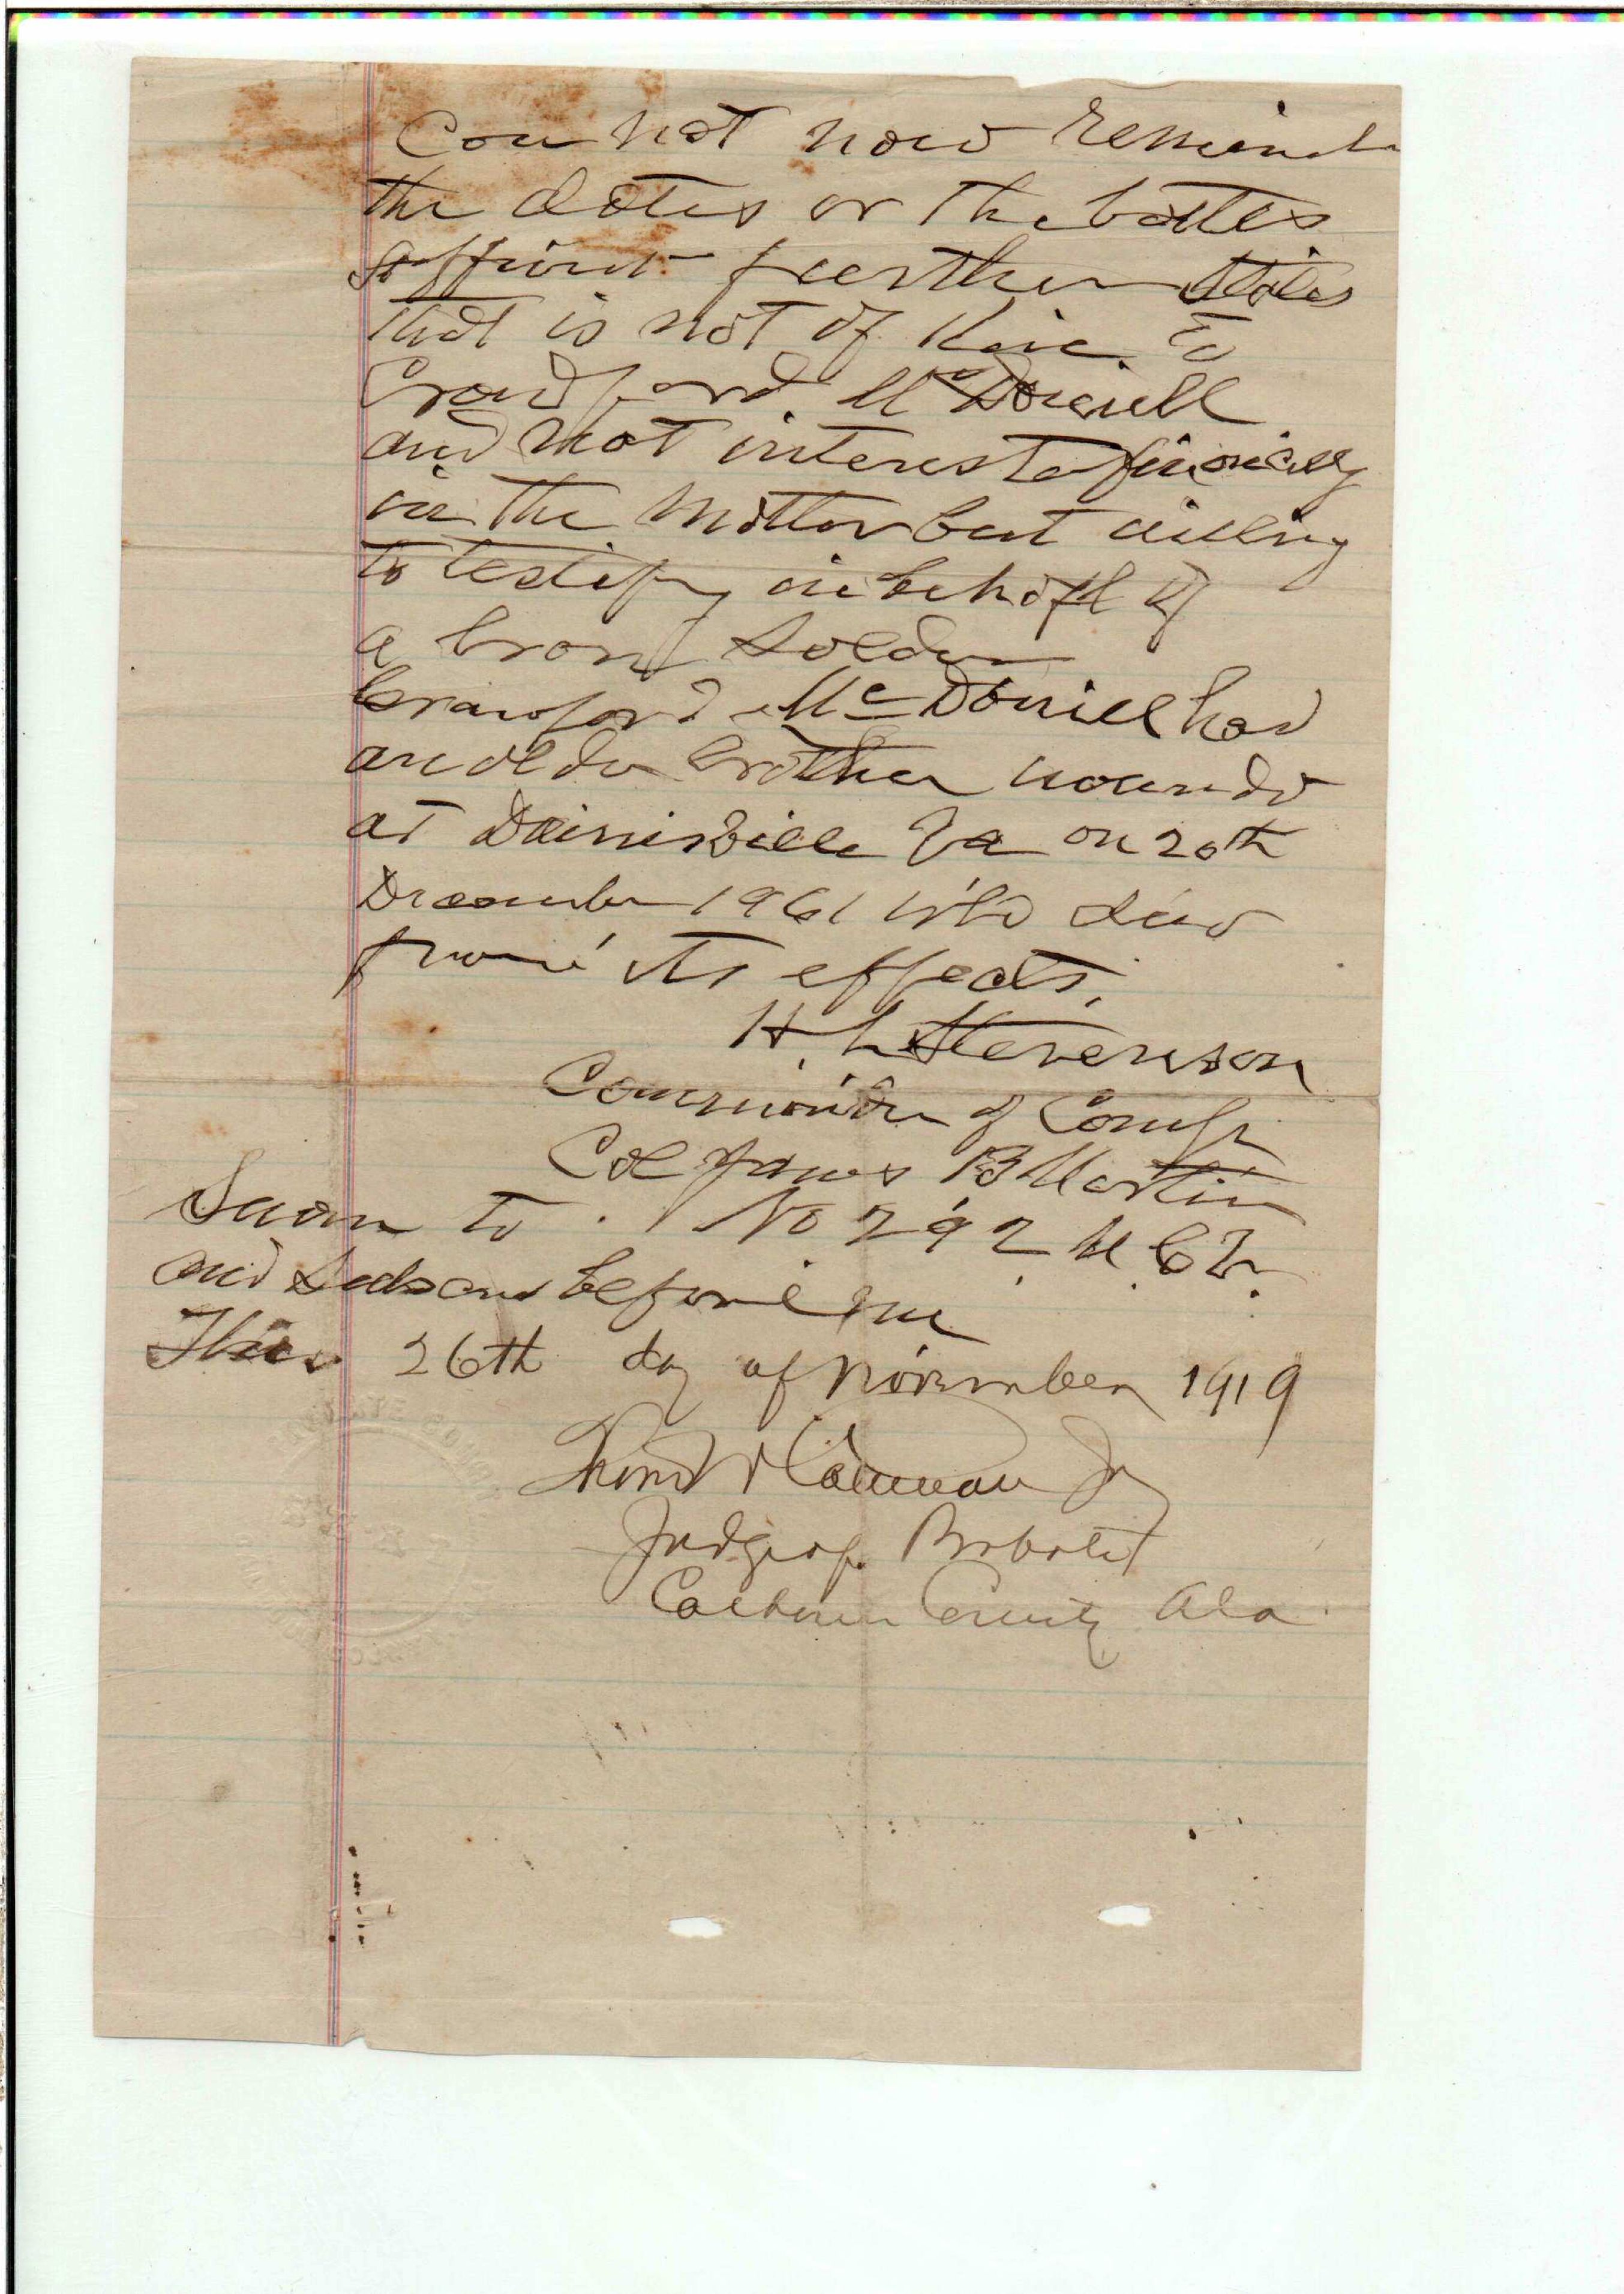 Can not now
the dates or the battles
affiant further states
that is not of Kin to
Crawford McDaniell
and not interested
in the matter but willing
to testify in behalf of
a brave Solder
Crawford McDaniell had
an older brother wounded
at Va on 20th
December 1961 who died
from its effects.
H. L. Stevenson
Commander of Camp
Col James B Martin
Sworn to No 292 U.C.V.
and before me
This 26th day of November 1919
Thos W Coleman Jr
Judge of Probate
Calhoun County Ala